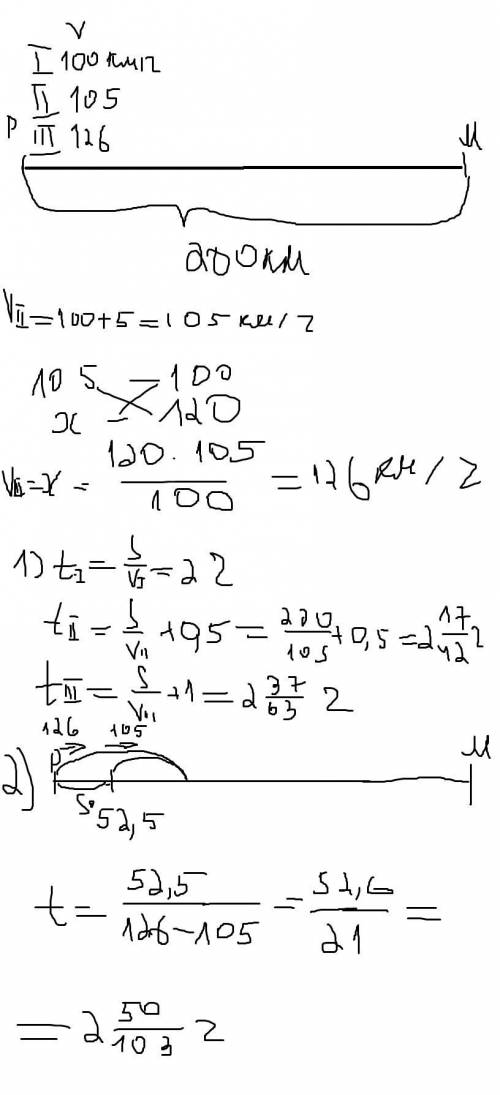 V
I 100 км/г
II 105
P III 126 М
200 км
VII = 100 + 5 = 105 км/г
105 – 100
x – 120
VIII = x = 120 · 105 / 100 = 126 км/г
1) tI = S/VI = 2 г
tII = S/VII + 0,5 = 200/105 + 0,5 = 2 17/42 г
tIII = S/VIII + 1 = 2 37/63 г
126 105
2) P М
S0 52,5
t = 52,5 / 126 – 105 = 52,5 / 21 =
= 2 50/103 г